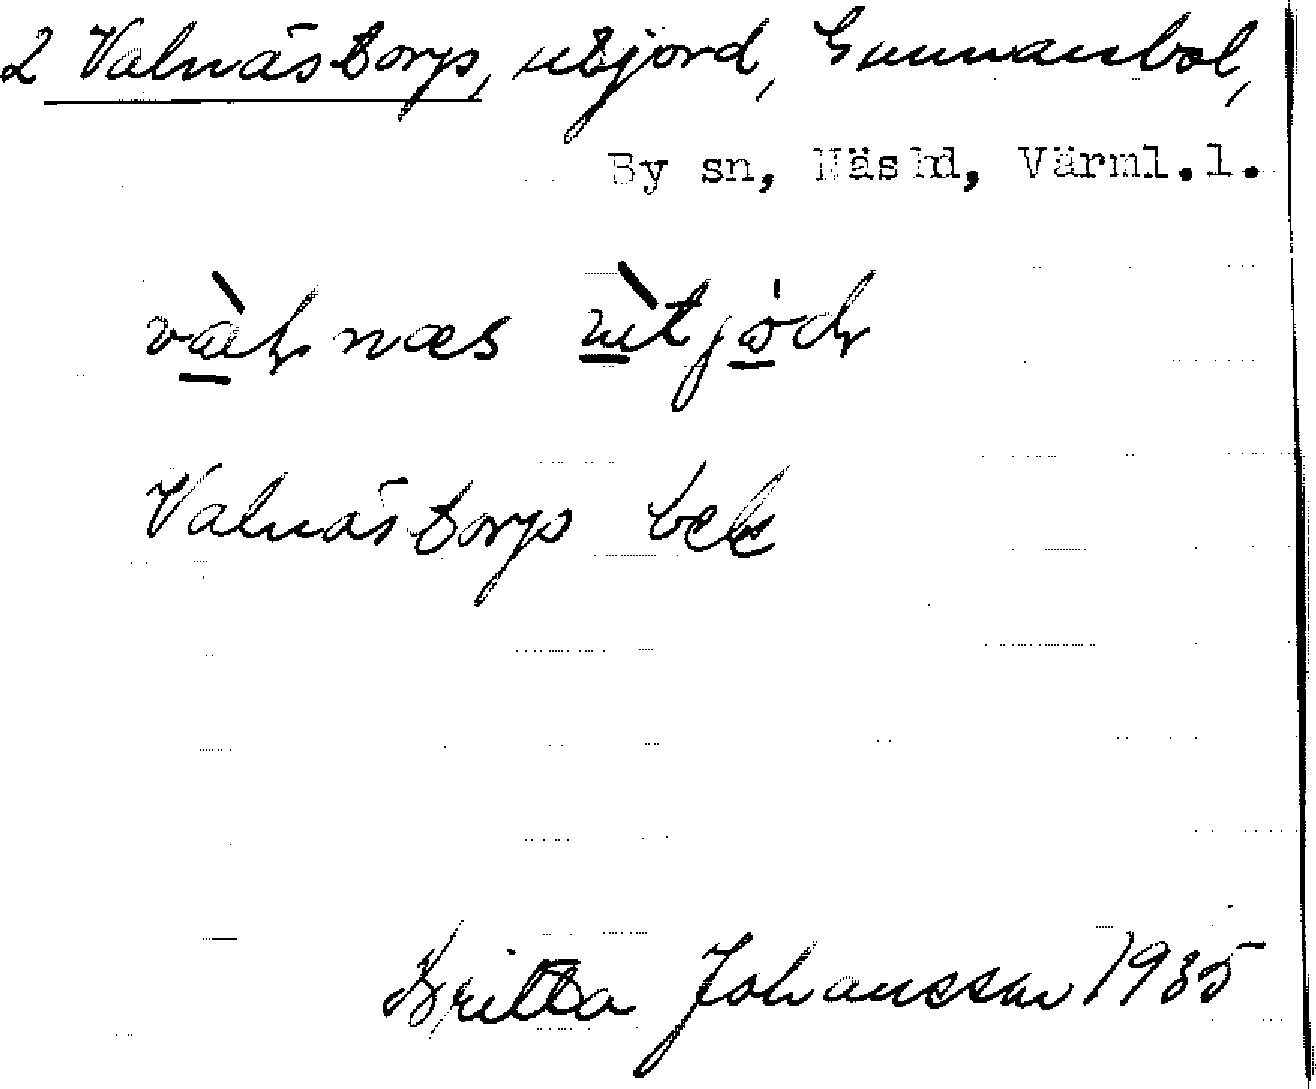 2 Valnästorp, utjord, Gunnarsbol,
By sn, Näs hd, Värml.l.
Valnästorp bek
Britta Johansson 1935